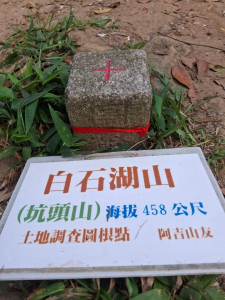 白石湖山
(坑頭山) 海拔 458 公尺
土地調查圖根點 / 阿吉山友